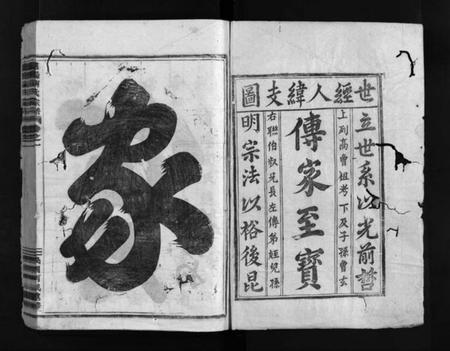 世經人緯支圖
立世系以光前哲
上列高曾祖考下及子孫曾玄
傳家至寶
右聯伯叔兄長左傳弟姪兒孫
明宗法以裕後昆
家